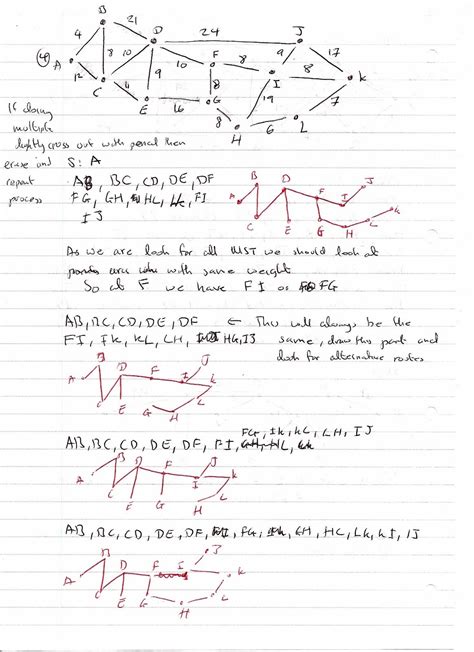 B
21
D
24
J
4
8
10
10
F
8
9
17
④
A
12
C
4
9
8
I
8
k
E
16
G
8
19
7
H
6
L
If doing
multiple
lightly cross out with pencil then
erase and S: A
repeat AB, BC, CD, DE, DF
process FG, GH, HL, Lk, FI
IJ
A B C D E F G H I J L k
As we are look for all MST we should look at
with same weight
So at F we have FI or FG
AB, BC, CD, DE, DF ← This will always be the
FI, Ik, kL, LH, HG, IJ same, draw this part and
look for alternative routes
A B C D E F G H I J k L
FG, Ik, kL, LH, IJ
AB, BC, CD, DE, DF, FI, GH, HL,
A B C D E F G H I J k L
AB, BC, CD, DE, DF, FI, FG, GH, HL, Lk, kI, IJ
A B C D E F G H I J k L